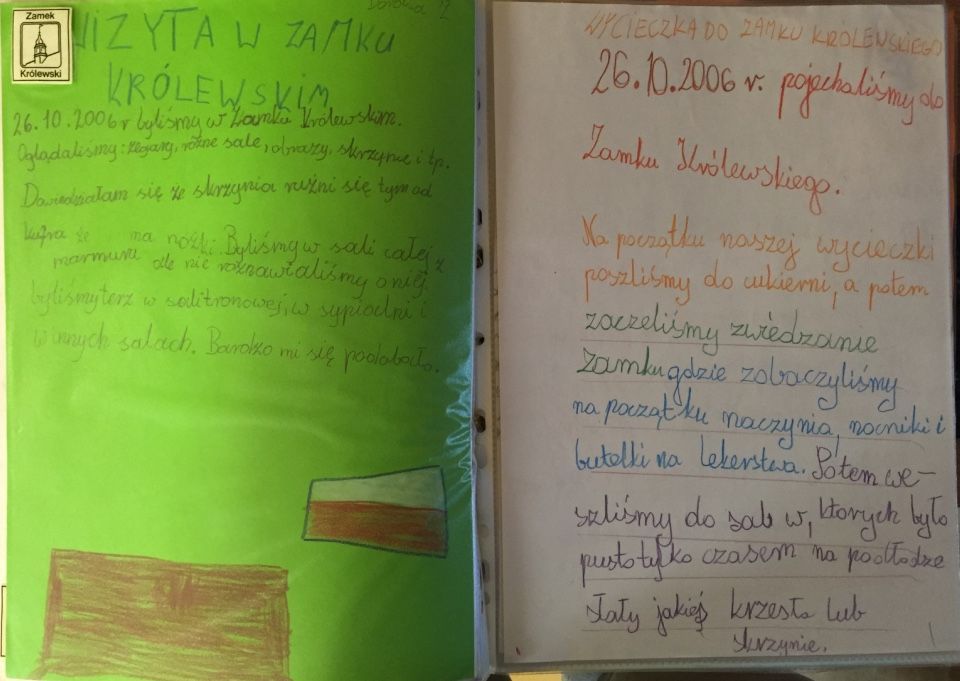 Zamek
Królewski
WIZYTA W ZAMKU
KRÓLEWSKIM
26.10.2006 r byliśmy w Zamku Królewskim.
Oglądaliśmy: zegary, różne sale, obrazy, skrzynie i tp.
Dowiedziałam się że skrzynia rużni się tym od
kufra że ma nóżki. Byliśmy w sali całej z
marmuru ale nie rozmawialiśmy o niej.
byliśmy terz w sali tronowej, w sypialni i
w innych salach. Bardzo mi się podobało.
WYCIECZKA DO ZAMKU KRÓLEWSKIEGO
26.10.2006 r. pojechaliśmy do
Zamku Królewskiego.
Na początku naszej wycieczki
poszliśmy do cukierni, a potem
zaczeliśmy zwiedzanie
Zamku gdzie zobaczyliśmy
na początku naczynia, nocniki i
butelki na lekerstwa. Potem we-
szliśmy do sal w, ktorych było
pusto tylko czasem na podłodze
stały jakieś krzesła lub
skrzynie.